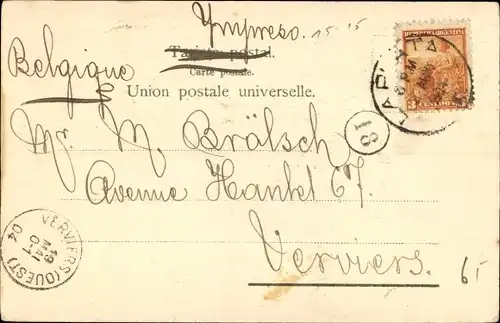 Impreso. 15 15
Tarjeta postal.
Belgique
Carte postale.
Union postale universelle.
REPUBLICA ARGENTINA
3 CENTAVOS
LA PLATA
18
Mr. M. Brälsch
Avenue Hankel 67.
Verviers.
VERVIERS (OUEST)
19
MAI
04
65